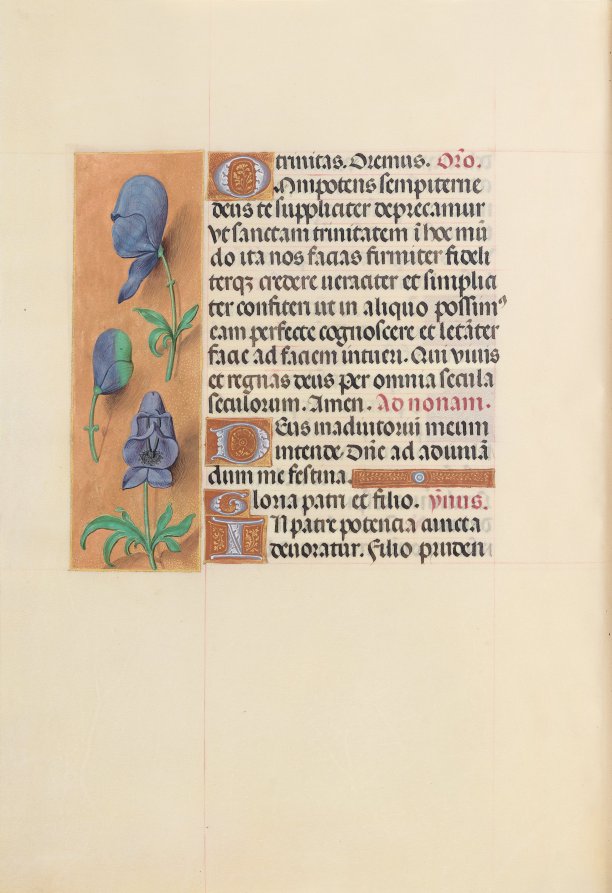 trinitas. Oremus. Oro̅.
Omnipotens sempiterne
deus te suppliciter deprecamur
vt sanctam trinitatem i̅ hoc mu̅
do ita nos facias firmiter fideli
terqꝫ credere ueraciter et simplici
ter confiteri ut in aliquo possimꝰ
eam perfecte cognoscere et leta̅ter
facie ad faciem intueri. Qui viuis
et regnas deus per omnia secula
seculorum. Amen. Ad nonam.
Deus in adiutorium meum
intende. Dn̅e ad adiuua̅
dum me festina.
Gloria patri et filio. ymnus.
In patre potencia cuncta
deuoratur. Filio pruden